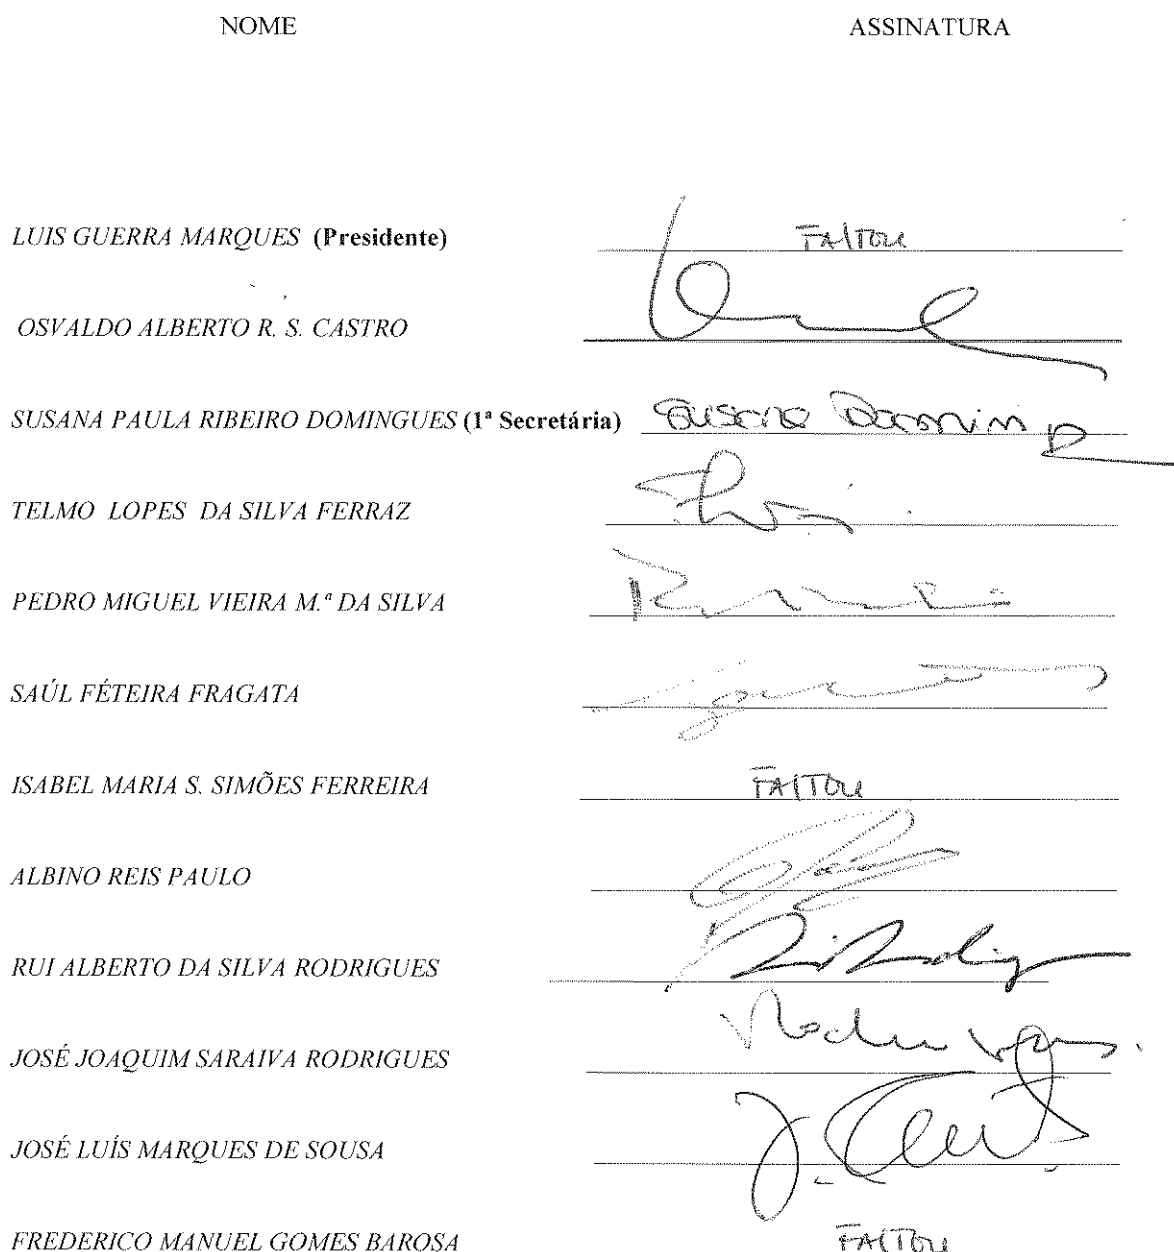 NOME ASSINATURA
LUIS GUERRA MARQUES (Presidente) FALTOU
OSVALDO ALBERTO R. S. CASTRO
SUSANA PAULA RIBEIRO DOMINGUES (1ª Secretária) Susana Domin
TELMO LOPES DA SILVA FERRAZ
PEDRO MIGUEL VIEIRA M.ª DA SILVA
SAÚL FÉTEIRA FRAGATA
ISABEL MARIA S. SIMÕES FERREIRA FALTOU
ALBINO REIS PAULO
RUI ALBERTO DA SILVA RODRIGUES Rui Rodrig
JOSÉ JOAQUIM SARAIVA RODRIGUES
JOSÉ LUÍS MARQUES DE SOUSA
FREDERICO MANUEL GOMES BAROSA FALTOU